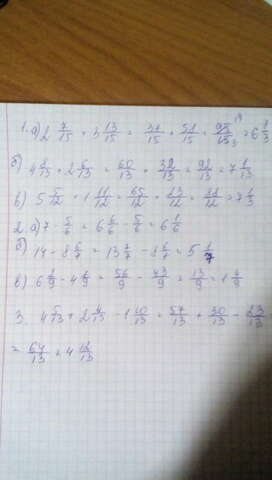 1. а) 2 7/15 + 3 13/15 = 37/15 + 58/15 = 95/15 19/3 = 6 1/3
б) 4 8/13 + 2 6/13 = 60/13 + 32/13 = 92/13 = 7 1/13
в) 5 5/12 + 1 11/12 = 65/12 + 23/12 = 88/12 = 7 1/3
2. а) 7 - 5/6 = 6 6/6 - 5/6 = 6 1/6
б) 14 - 8 6/7 = 13 7/7 - 8 6/7 = 5 1/7
в) 6 2/9 - 4 7/9 = 56/9 - 43/9 = 13/9 = 1 4/9
3. 4 5/13 + 2 4/13 - 1 10/13 = 57/13 + 30/13 - 23/13
= 64/13 = 4 12/13